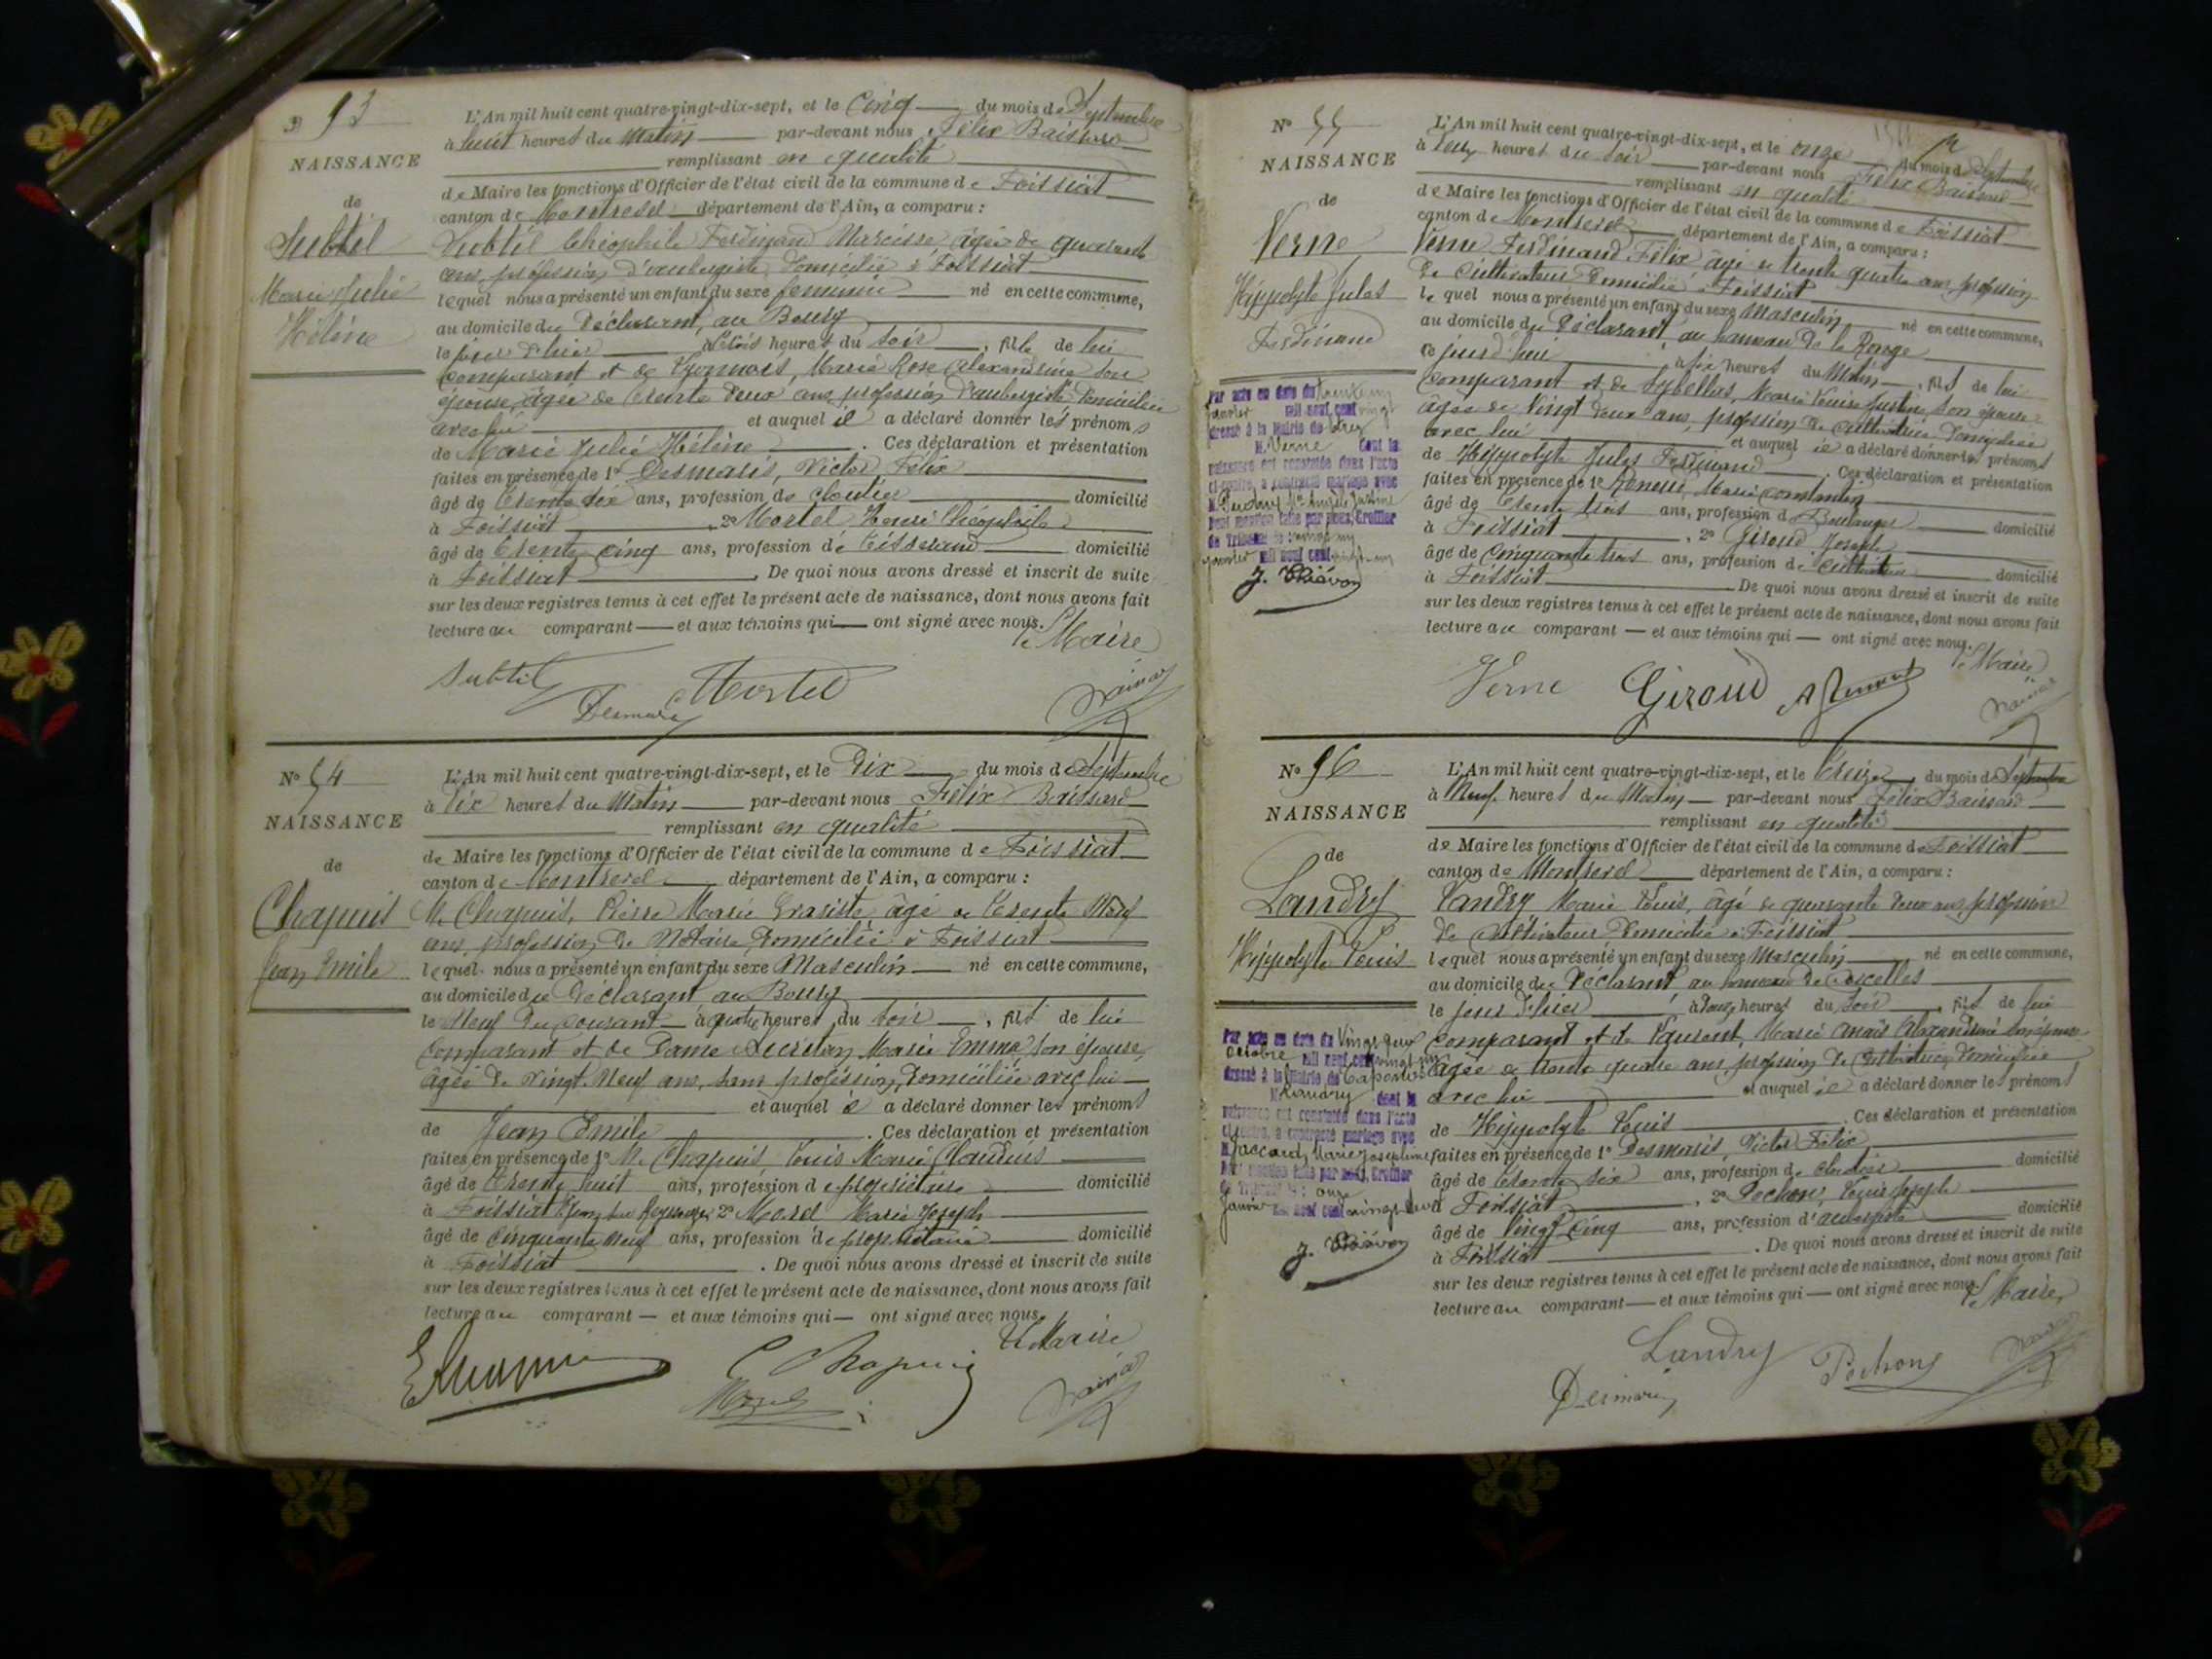 93
NAISSANCE
de
Subtil
Marie Julie
Hélène
L'An mil huit cent quatre-vingt-dix-sept, et le Cinq du mois de Septembre
à huit heures du Matin par-devant nous Félix Baissard
remplissant en qualité
de Maire les fonctions d'Officier de l'état civil de la commune de Foissiat
canton de Montrevel département de l'Ain, a comparu :
Subtil Théophile Ferdinand Narcisse âgé de quarante
ans, profession d'aubergiste domicilié à Foissiat
lequel nous a présenté un enfant du sexe féminin né en cette commune,
au domicile du Déclarant, au Bourg
le jour d'hier à trois heures du soir, fille de lui
comparant et de Lyonnais, Marie Rose Alexandrine son
épouse, âgée de trente deux ans, profession d'aubergiste domiciliée
avec lui et auquel il a déclaré donner les prénoms
de Marie Julie Hélène. Ces déclaration et présentation
faites en présence de 1º Desmaris, Victor Félix
âgé de trente six ans, profession de cloutier domicilié
à Foissiat, 2º Mortel Henri Théophile
âgé de trente cinq ans, profession de tisserand domicilié
à Foissiat. De quoi nous avons dressé et inscrit de suite
sur les deux registres tenus à cet effet le présent acte de naissance, dont nous avons fait
lecture au comparant — et aux témoins qui — ont signé avec nous.
Le Maire
Subtil
Desmaris
Mortel
Nº 54
NAISSANCE
de
Chapuis
Jean Emile
L'An mil huit cent quatre-vingt-dix-sept, et le Dix du mois de Septembre
à dix heures du Matin par-devant nous Félix Baissard
remplissant en qualité
de Maire les fonctions d'Officier de l'état civil de la commune de Foissiat
canton de Montrevel département de l'Ain, a comparu :
M. Chapuis, Pierre Marie Eraste, âgé de trente Neuf
ans, profession de Notaire domicilié à Foissiat
lequel nous a présenté un enfant du sexe Masculin né en cette commune,
au domicile du Déclarant au Bourg
le Neuf du courant à quatre heures du soir, fils de lui
comparant et de Dame Secretan Marie Emma son épouse,
âgée de vingt-Neuf ans, sans profession, domiciliée avec lui
et auquel il a déclaré donner les prénoms
de Jean Emile. Ces déclaration et présentation
faites en présence de 1º M. Chapuis Louis Marie Claudius
âgé de trente huit ans, profession de propriétaire domicilié
à 2º Morel Marie Joseph
âgé de Cinquante Neuf ans, profession de propriétaire domicilié
à Foissiat. De quoi nous avons dressé et inscrit de suite
sur les deux registres tenus à cet effet le présent acte de naissance, dont nous avons fait
lecture au comparant — et aux témoins qui — ont signé avec nous.
Le Maire
E Chapuis
C Chapuis
Morel
Nº 55
NAISSANCE
de
Verne
Hippolyte Jules
Ferdinand
Par acte en date du
janvier mil neuf cent vingt
dressé à la Mairie de
M. Verne dont la
naissance est constatée dans l'acte
ci-contre, a contracté mariage avec
Dont mention faite par nous, Greffier
du Tribunal le
janvier mil neuf cent vingt-un
L'An mil huit cent quatre-vingt-dix-sept, et le onze du mois de Septembre
à heures du soir par-devant nous Félix Baissard
remplissant en qualité
de Maire les fonctions d'Officier de l'état civil de la commune de Foissiat
canton de Montrevel département de l'Ain, a comparu :
Verne Ferdinand Félix âgé de trente quatre ans profession
de Cultivateur domicilié à Foissiat
lequel nous a présenté un enfant du sexe Masculin né en cette commune,
au domicile du Déclarant au hameau de la Ronge
ce jourd'hui à six heures du Matin, fils de lui
comparant et de Marie Louise Justine son épouse
âgée de Vingt deux ans, profession de cultivatrice domiciliée
avec lui et auquel il a déclaré donner les prénoms
de Hippolyte Jules Ferdinand. Ces déclaration et présentation
faites en présence de 1º Marie
âgé de trente trois ans, profession de Boulanger domicilié
à Foissiat, 2º Giroud Joseph
âgé de Cinquante trois ans, profession de Cultivateur domicilié
à Foissiat De quoi nous avons dressé et inscrit de suite
sur les deux registres tenus à cet effet le présent acte de naissance, dont nous avons fait
lecture au comparant — et aux témoins qui — ont signé avec nous.
Le Maire
Verne
Giroud
Nº 96
NAISSANCE
de
Landry
Hippolyte Louis
Par acte en date du Vingt deux
Octobre mil neuf cent vingt un
dressé à la Mairie de
M. Landry dont la
naissance est constatée dans l'acte
ci-contre, a contracté mariage avec
M. Jaccard, Marie Joséphine
Dont mention faite par nous, Greffier
du Tribunal le onze
Janvier mil neuf cent vingt deux
L'An mil huit cent quatre-vingt-dix-sept, et le treize du mois de Septembre
à Neuf heures du Matin par-devant nous Félix Baissard
remplissant en qualité
de Maire les fonctions d'Officier de l'état civil de la commune de Foissiat
canton de Montrevel département de l'Ain, a comparu :
Landry Marie Louis, âgé de quarante deux ans profession
de Cultivateur domicilié à Foissiat
lequel nous a présenté un enfant du sexe Masculin né en cette commune,
au domicile du Déclarant au hameau de Corcelles
le jour d'hier à onze heures du soir, fils de lui
comparant et de Laurent, Marie Anaïs Alexandrine son épouse
âgée de trente quatre ans, profession de Cultivatrice, domiciliée
avec lui et auquel il a déclaré donner les prénoms
de Hippolyte Louis. Ces déclaration et présentation
faites en présence de 1º Desmaris, Victor Félix
âgé de trente six ans, profession de cloutier domicilié
à Foissiat, 2º Pochon, Louis Joseph
âgé de Vingt Cinq ans, profession d'aubergiste domicilié
à Foissiat. De quoi nous avons dressé et inscrit de suite
sur les deux registres tenus à cet effet le présent acte de naissance, dont nous avons fait
lecture au comparant — et aux témoins qui — ont signé avec nous.
Le Maire
Landry
Desmaris
Pochon